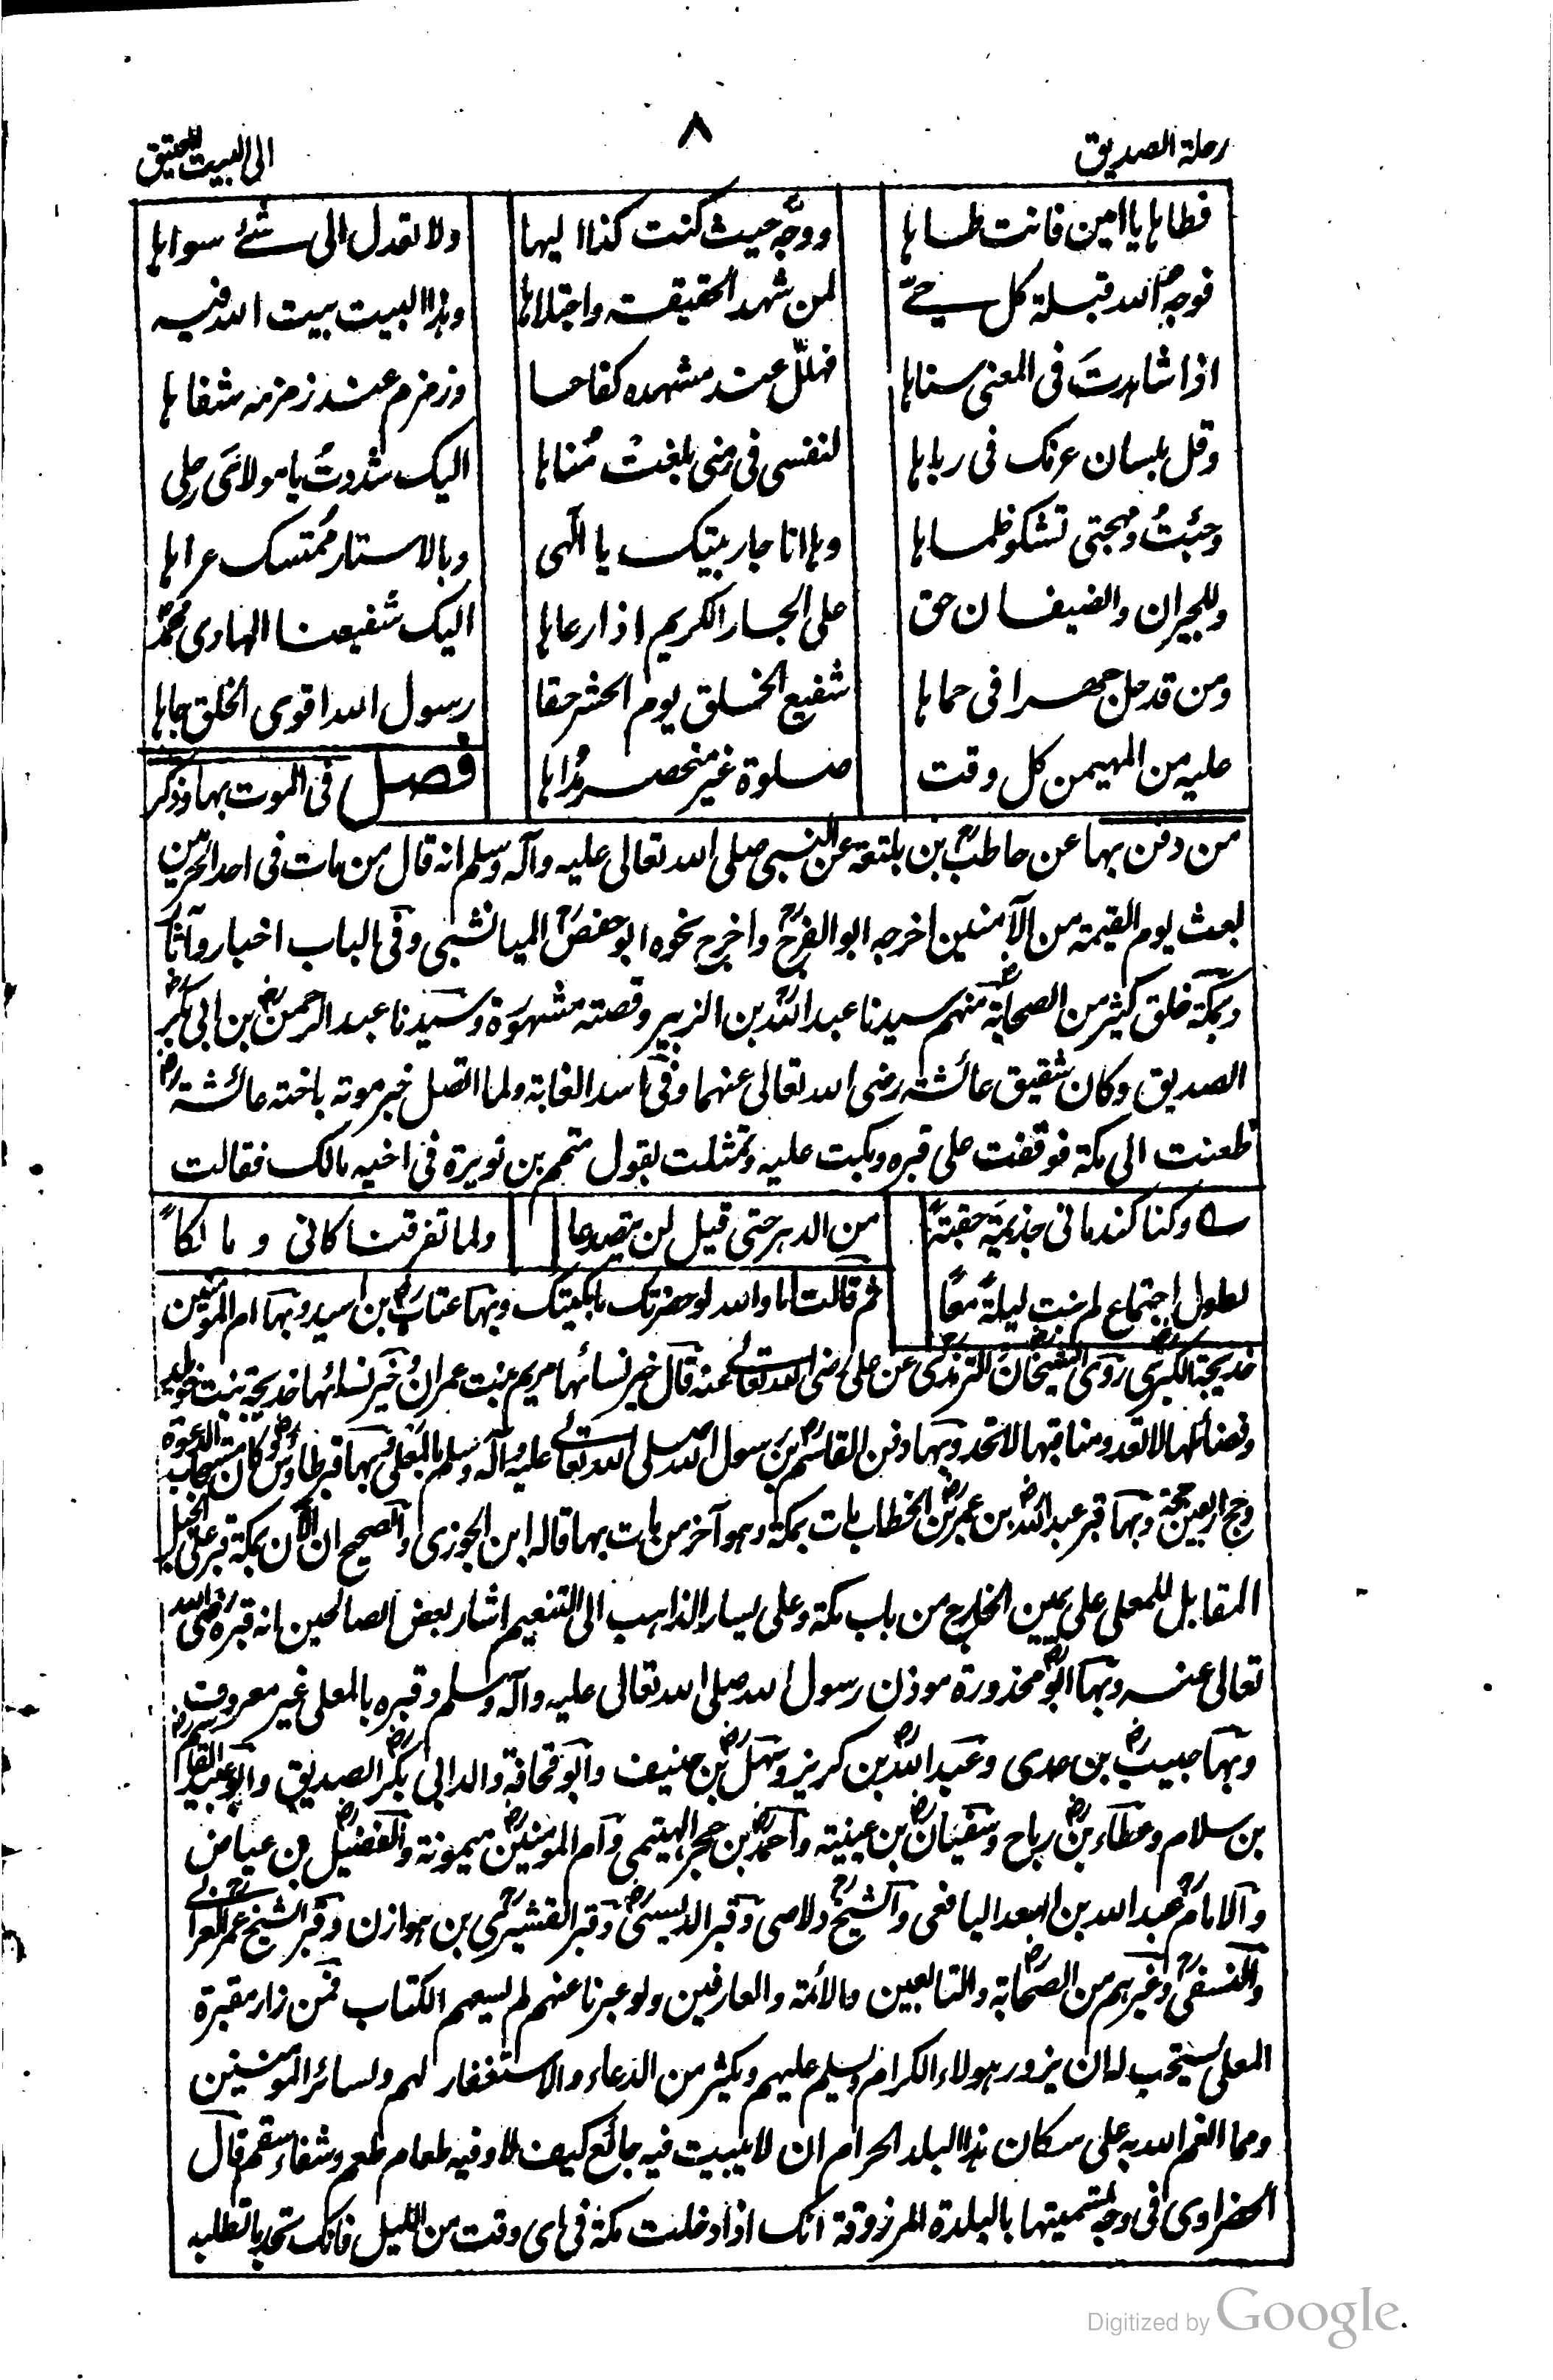 رحلة الصديق
٨
الى البيت العتيق
فطاها يا امين فانت طه طاها ووجّه حيث كنت كذا اليها ولا تعدل الى شئ سواها
فوجه الله قبلة كل حيّ لمن شهد الحقيقة واجتلاها وهذا البيت بيت الله فيه
اذا شاهدتَ فى المعنى سناها فهلّل عند مشهده كفاحا وزمزم عند زمزمه شفاها
وقل بلسان عرفك فى رباها لنفسى فى منى بلغت مُناها اليك شددتُ يا مولاىَ رحلى
وجئتُ ومهجتى تشكو ظماها وها انا جار بيتك يا الهى وبالاستار مُمتسك عراها
وللجيران والضيفان حق على الجار الكريم اذا رعاها اليك شفيعنا الهادى محمّد
ومن قد حل جهرا فى حماها شفيع الخلق يوم الحشر حقا رسول الله اقوى الخلق جاها
عليه من المهيمن كل وقت صلوة غير منحصر مُداها فصل فى الموت بها وذكر
من دفن بها عن حاطب بن بلتعة عن النبى صلى الله تعالى عليه وآله وسلم انه قال من مات فى احد الحرمين
بعث يوم القيمة من الآمنين اخرجه ابو الفرج واخرج نحوه ابو حفص الميانشى وفى الباب اخبار وآثار
وبمكة خلق كثير من الصحابة منهم سيدنا عبد الله بن الزبير وقصته مشهورة وسيدنا عبد الرحمن بن ابى بكر
الصديق وكان شقيق عائشة رضى الله تعالى عنهما وفى اسد الغابة ولما اتصل خبر موته باخته عائشة
ظعنت الى مكة فوقفت على قبره وبكت عليه وتمثلت بقول متمم بن نويرة فى اخيه مالك فقالت
ــه وكنا كندمانى جذيمة حقبةً من الدهر حتى قيل لن يتصدعا ولما تفرقنا كانى و مالكاً
لطول اجتماع لم نبت ليلةً معاً ثم قالت اما والله لو حضرتك ما بكيتك وبها عتاب بن اسيد وبها ام المومنين
خديجة الكبرى روى الشيخان والترمذى عن على رضى الله تعالى عنه قال خير نسائها مريم بنت عمران وخير نسائها خديجة بنت خويلد
وفضائلها لا تعد ومناقبها لا تحد وبها دفن القاسم بن رسول الله صلى الله تعالى عليه وآله وسلم بالمعلى وبها قبر طاوس وكان مستجاب الدعوة
وحج اربعين حجة وبها قبر عبد الله بن عمر بن الخطاب مات بمكة وهو آخر من مات بها قاله ابن الجوزى والصحيح ان الآن بمكة قبر على الجبل
المقابل للمعلى على يمين الخارج من باب مكة وعلى يسار الذاهب الى التنعيم اشار بعض الصالحين انه قبره رضى الله
تعالى عنه وبها ابو محذورة موذن رسول الله صلى الله تعالى عليه وآله وسلم وقبره بالمعلى غير معروف
وبها حبيب بن عدى وعبد الله بن كريز وسهل بن حنيف وابو قحافة والد ابى بكر الصديق وابو عبيد القاسم
بن سلام وعطاء بن رباح وسفيان بن عيينة واحمد بن حجر الهيتمى وام المومنين ميمونة والفضيل بن عياض
والامام عبد الله بن اسعد اليافعى والشيخ دلاصى وقبر الديسى وقبر القشيرى بن هوازن وقبر الشيخ عمر العرابى
والنسفى وغيرهم من الصحابة والتابعين والائمة والعارفين ولو عبرنا عنهم لم يسعهم الكتاب فمن زار مقبرة
المعلى يستحب له ان يزور هولاء الكرام ويسلم عليهم ويكثر من الدعاء والاستغفار لهم ولسائر المومنين
ومما انعم الله به على سكان هذا البلد الحرام ان لا يبيت فيه جائع كيف لا وفيه طعام طعم وشفاء سقم قال
الحضراوى فى وجه تسميتها بالبلدة المرزوقة انك اذا دخلت مكة فى اى وقت من الليل فانك تجد ما تطلبه
Digitized by Google